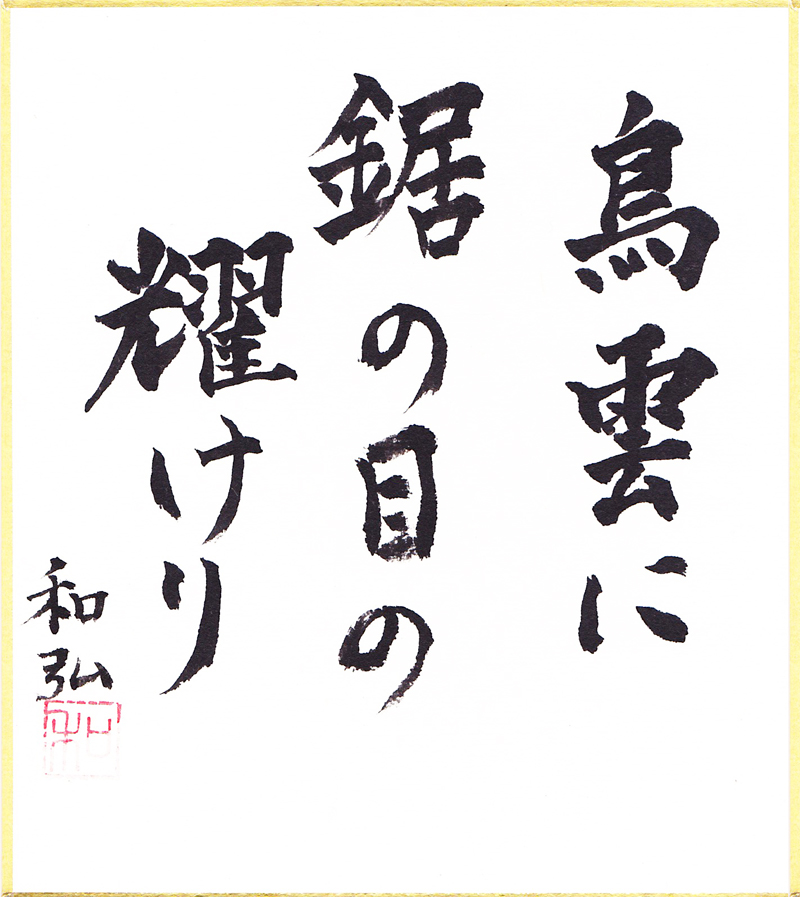 鳥雲に
鋸の目の
耀けり
和弘
和